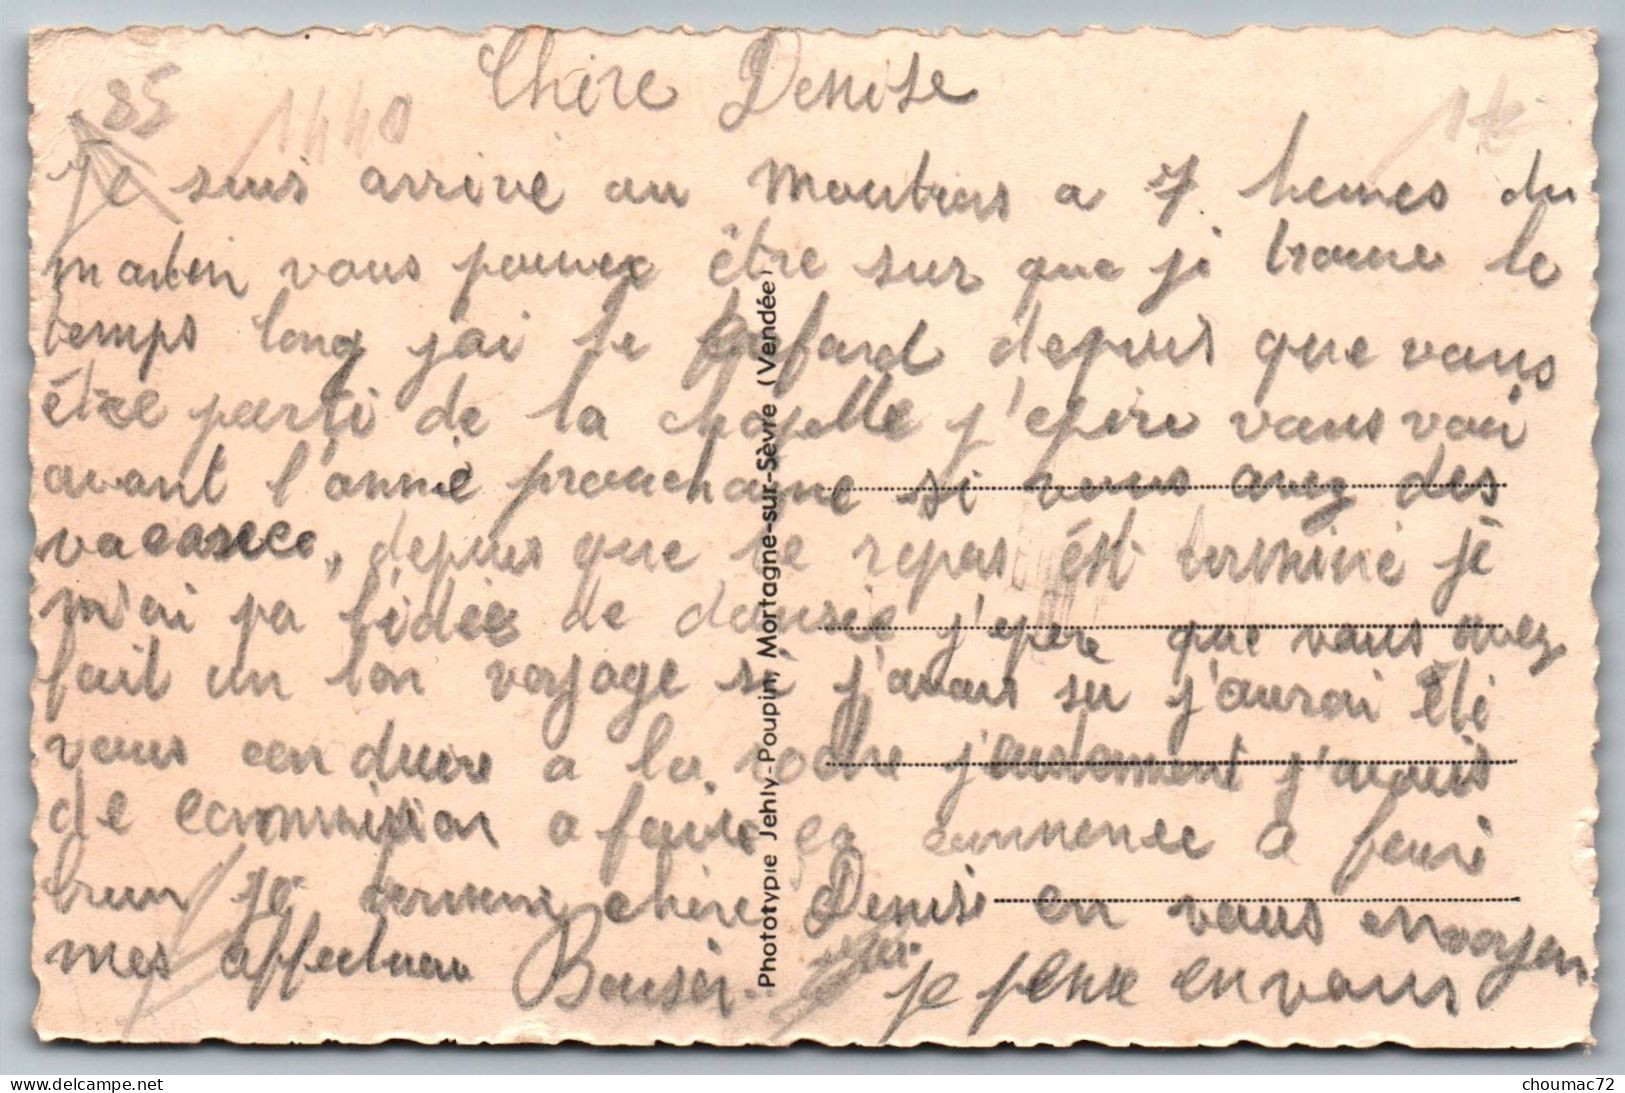 Chère Denise
85
1440
1€
Je suis arrive au Moutiers a 7 heures du
matin vous pouvez être sur que je trouve le
temps long j'ai le cafard depuis que vous
être parti de la chapelle j'epère vous voir
avant l'année prouchaine si vous avez des
vacances, depuis que le repas ést terminé je
n'ai pa l'idée de dansée j'epère que vous avez
fait un bon voyage si j'avais su j'aurai été
vous conduire a la roche j'eustement j'avais
de commision a faire ça commence a fair
brun je termine chère Denise en vous envoyen
mes affectueu Bauser je pense en vous
Phototypie Jehly-Poupin, Mortagne-sur-Sèvre (Vendée)
delcampe.net
choumac72